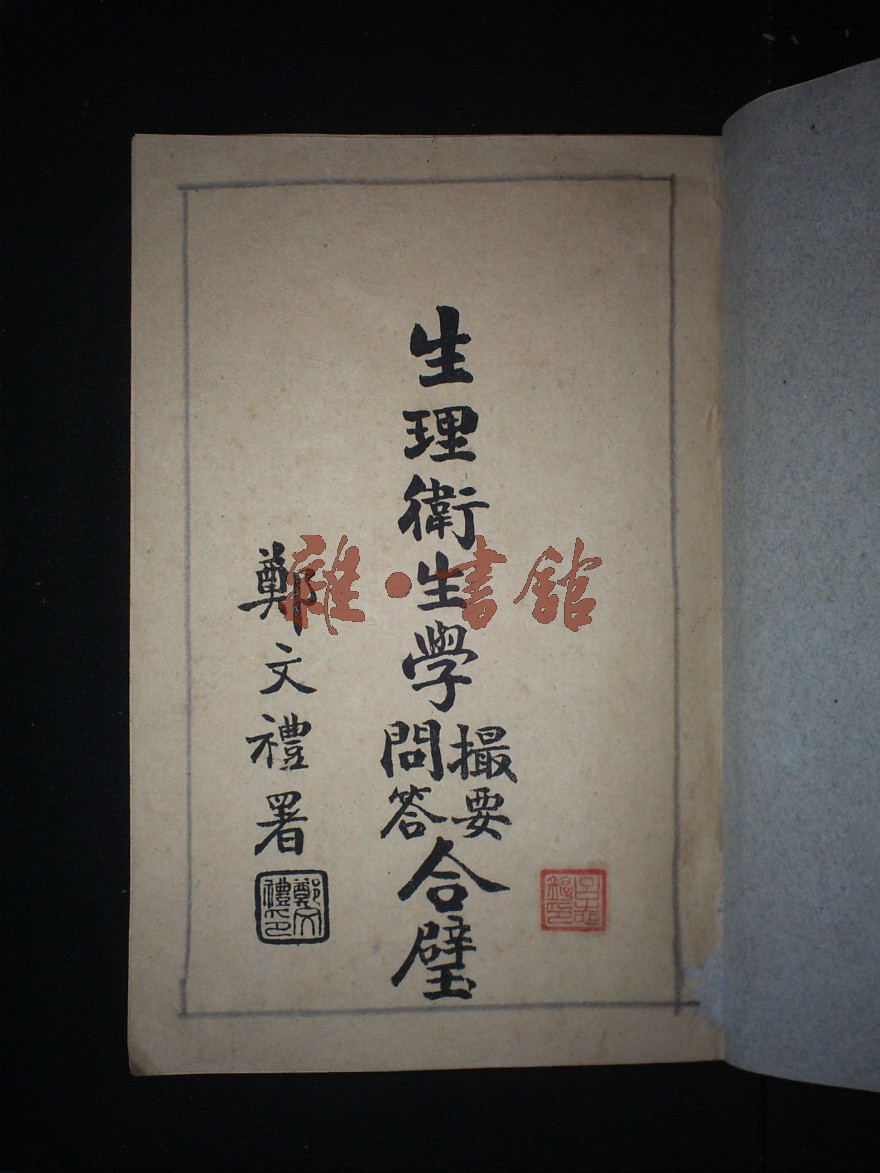 生理衛生學撮要問答合璧
鄭文禮署
鄭文禮印
雜·書館